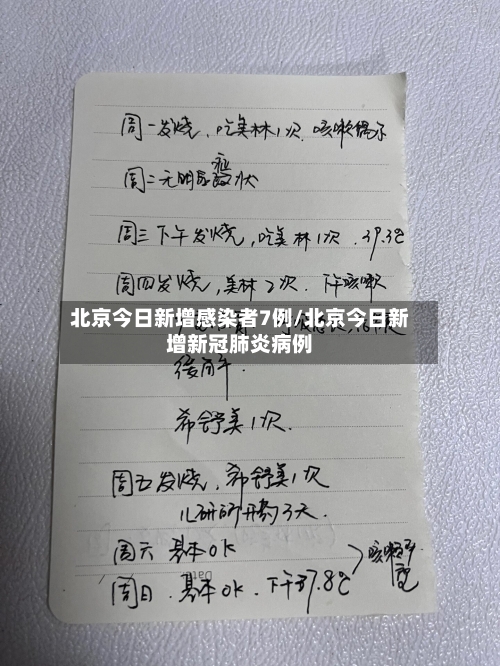 周一发烧,吃美林1次.咳嗽偶尔
周二无明显症状
周三下午发烧,吃美林1次.39.3℃
周四发烧,美林2次.下午咳嗽
北京今日新增感染者7例/北京今日新
增新冠肺炎病例
缓解.
希舒美1次.
周五发烧,希舒美1次
儿研所开药3天.
周六 基本OK
周日.基本OK.下午37.8℃
咳嗽